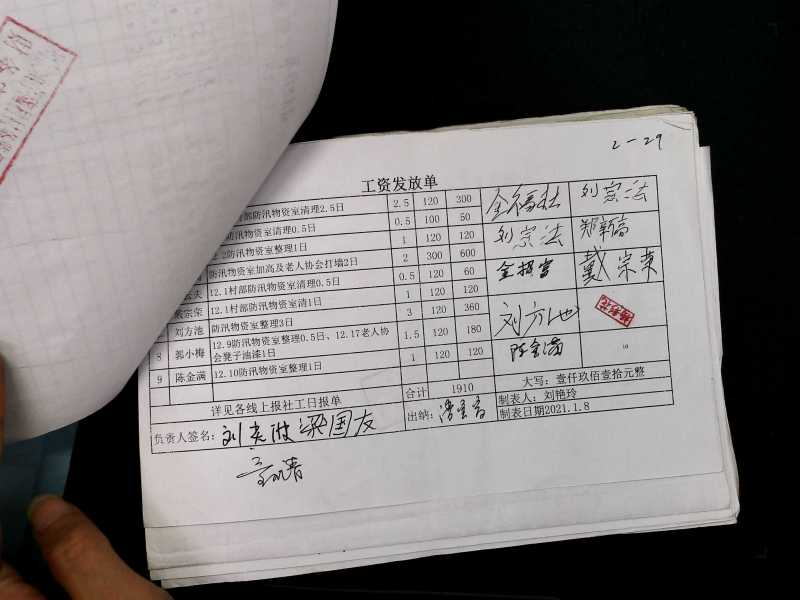 2-29
工资发放单
部防汛物资室清理2.5日 2.5 120 300 刘宗法
防汛物资室清理0.5日 0.5 100 50 刘宗法 郑新高
2防汛物资室整理1日 1 120 120
防汛物资室加高及老人协会打墙2日 2 300 600 戴宗荣
夫 12.1村部防汛物资室清理0.5日 0.5 120 60
宗荣 12.1村部防汛物资室清1日 1 120 120
刘方池 防汛物资室整理3日 3 120 360 刘方池
8 郭小梅 12.9防汛物资室整理0.5日、12.17老人协会凳子油漆1日 1.5 120 180
9 陈金满 12.10防汛物资室整理1日 1 120 120 陈金满
详见各线上报社工日报单 合计 1910 大写：壹仟玖佰壹拾元整
负责人签名： 梁国友 出纳： 制表人：刘艳玲
制表日期2021.1.8